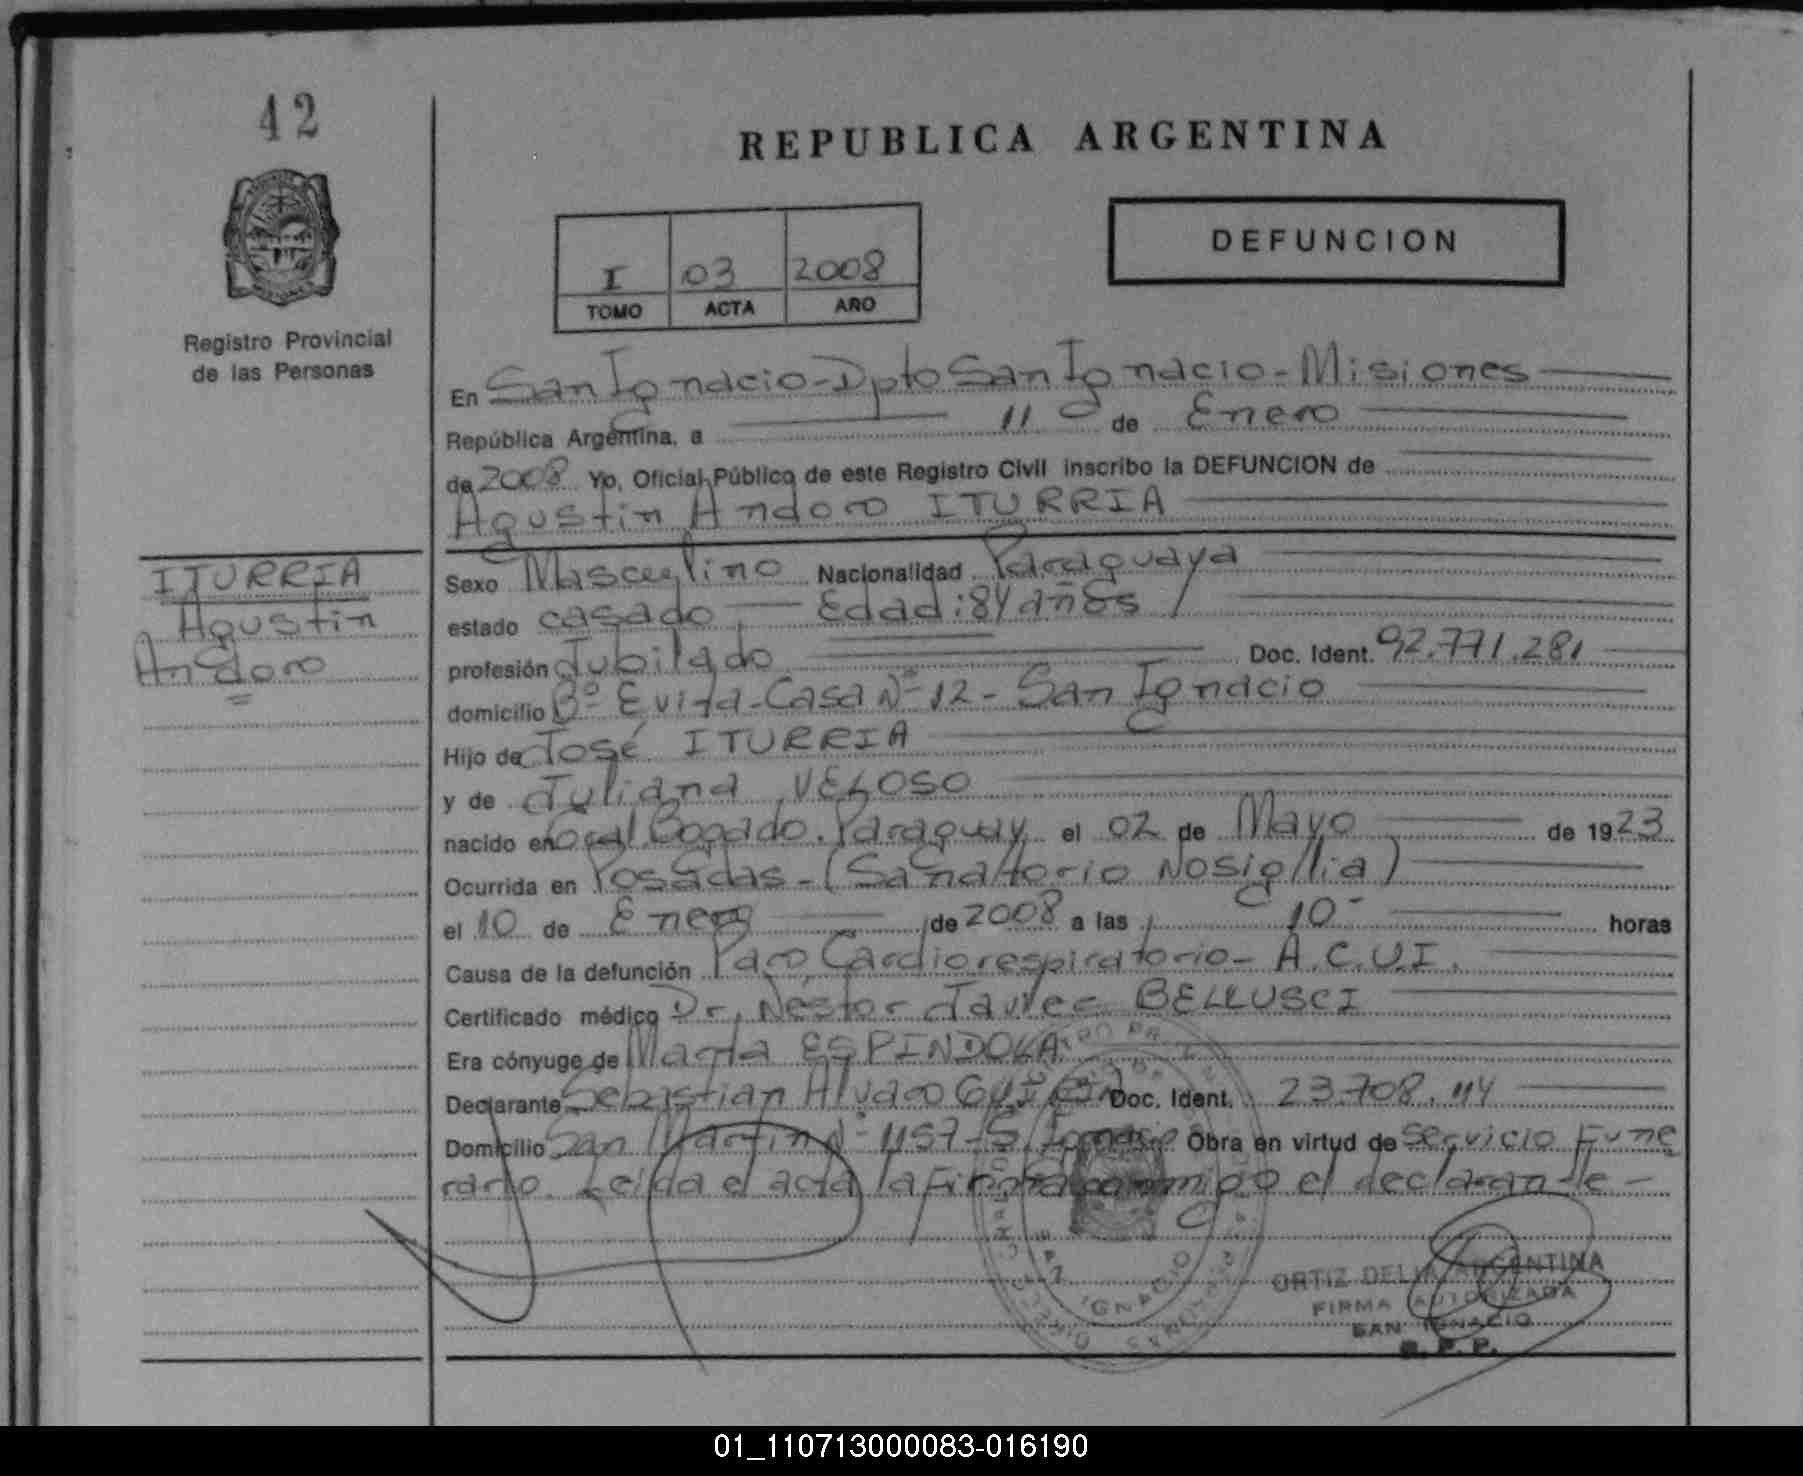 42
REPUBLICA ARGENTINA
DEFUNCION
I 03 2008
TOMO ACTA AÑO
Registro Provincial
de las Personas
En San Ignacio - Dpto San Ignacio - Misiones
República Argentina, a 11 de Enero
de 2008 Yo, Oficial Público de este Registro Civil inscribo la DEFUNCION de
Agustin Andoro ITURRIA
ITURRIA
Agustin
Andoro
Sexo Masculino Nacionalidad Paraguaya
estado casado Edad: 84 años
profesión Jubilado Doc. Ident. 92.771.281
domicilio Bº Evita - Casa Nº 12 - San Ignacio
Hijo de José ITURRIA
y de Juliana VELOSO
nacido en Gral. Bogado. Paraguay el 02 de Mayo de 1923
Ocurrida en Posadas - (Sanatorio Nosiglia)
el 10 de Enero de 2008 a las 10 - horas
Causa de la defunción Paro Cardiorespiratorio - A.C.V.I.
Certificado médico Dr. Nestor Javier BELLUSCI
Era cónyuge de Marta ESPINDOLA
Declarante Sebastian Alvaro Doc. Ident. 23.708.114
Domicilio San Martin Nº 1157 - S. Ignacio Obra en virtud de servicio Fune
rario. Leida el acta la Firma conmigo el declarante -
SAN IGNACIO
ORTIZ DELIA ARGENTINA
FIRMA AUTORIZADA
SAN IGNACIO
R. P. P.
01_110713000083-016190